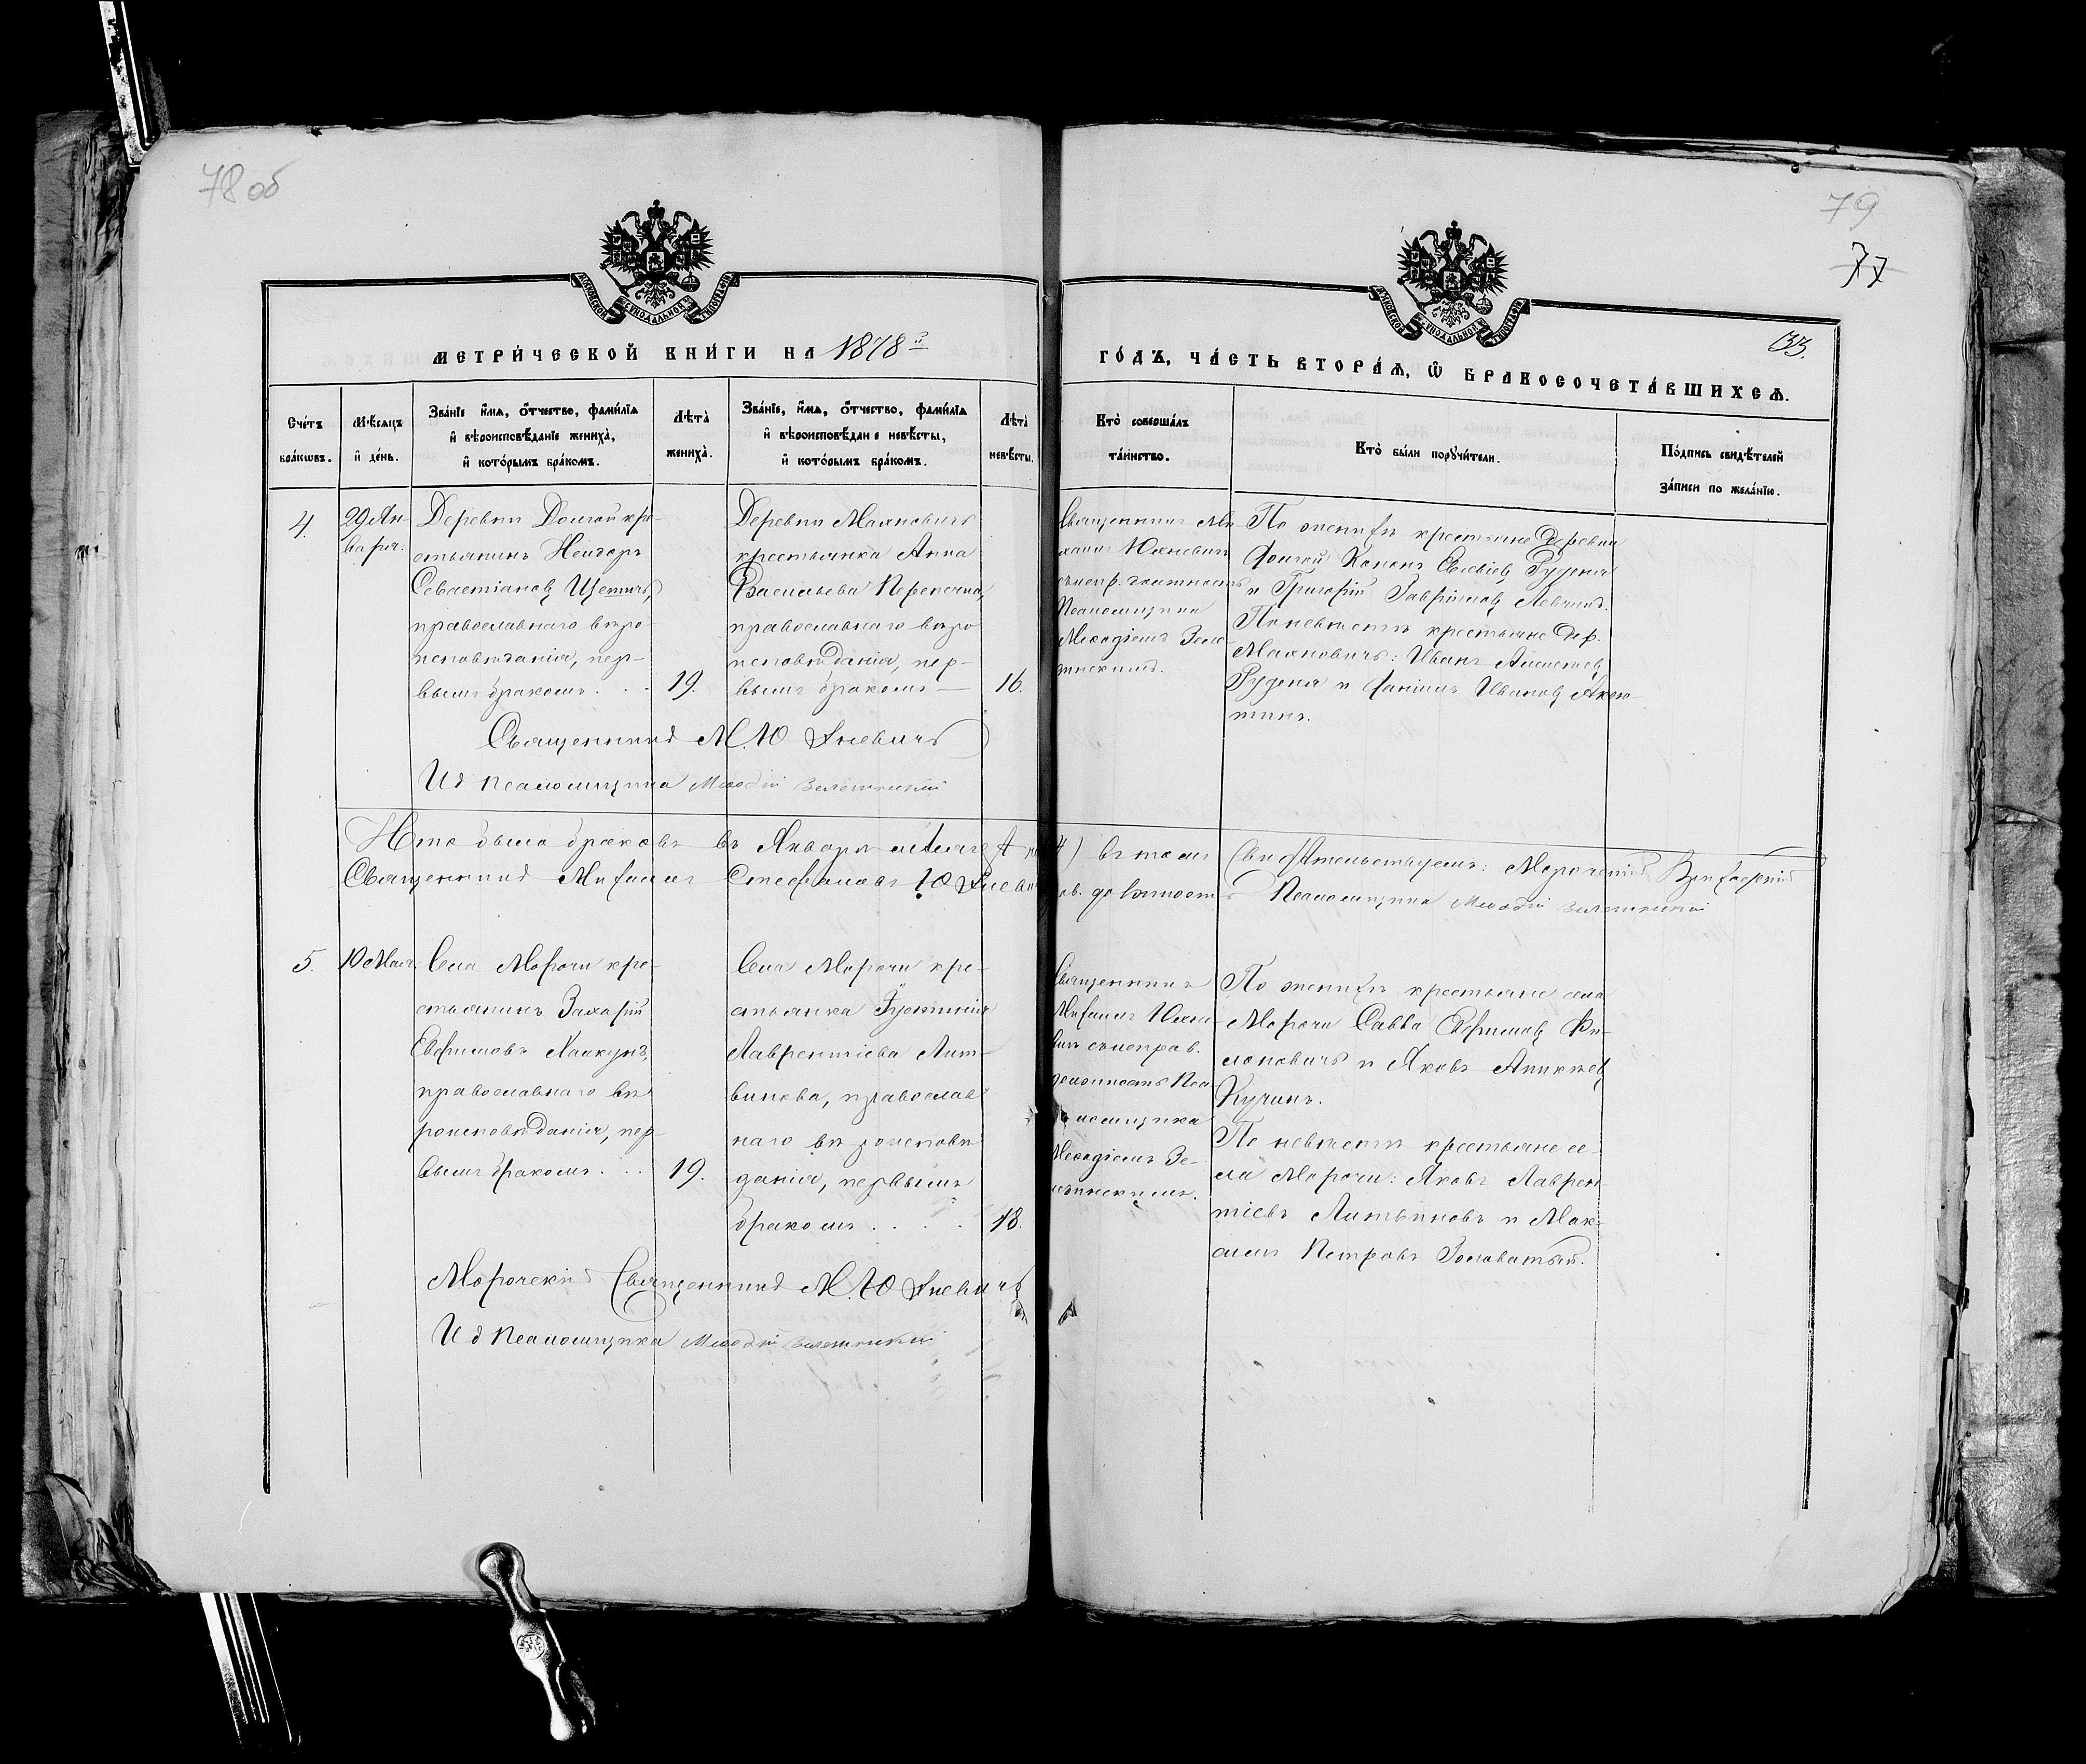 78 об
79
77
133.
МЕТРИ́ЧЕСКОЙ КНИ́ГИ НА 1878й
ГО́ДЪ, ЧА́СТЬ ВТОРА́Ѧ, Ѽ БРАКОСОЧЕТА́ВШИХСѦ.
Сче́тъ бра́кѡвъ.
Мѣ́сяцъ и҆ де́нь.
Зва́нїе и҆́мѧ, ѻ҆́тчество, фами́лїѧ
и҆ вѣроисповѣ́данїе жениха̀,
и҆ кото́рымъ бра́комъ.
Лѣта̀ жениха̀.
Зва́нїе, и҆́мѧ, ѻ҆́тчество, фами́лїѧ
и҆ вѣроисповѣдан е невѣ́сты,
и҆ кото́рымъ бра́комъ.
Лѣта̀ невѣ́сты.
Кто̀ соверша́лъ та́инство.
Кто̀ бы́ли порꙋчи́тели.
По́дпись свидѣ́телей за́писи по жела́нїю.
4.
29 Ян-
варя.
Деревни Долгой кре-
стьянинъ
Севастіановъ
православнаго вѣро-
исповѣданія, пер-
вымъ бракомъ . . .
19.
Деревни Махновичъ
крестьянка Анна
Васильева Перепечина,
православнаго вѣро
исповѣданія, пер-
вымъ бракомъ —
16.
Священникъ Ми-
хаилъ Юхневичъ
съ испр. должность
Псаломщика
Меѳодіемъ Зеле-
тинскимъ.
По женихѣ крестьяне деревни
Долгой Кононъ Руденя
и Григорій Гавріиловъ Левчикъ.
По невѣстѣ крестьяне дер.
Махновичъ: Иванъ Алексѣевъ
Руденя и Даніилъ Ивановъ
Священникъ М. Юхневичъ
И д Псаломщика Меѳодій
Итого было браковъ въ Январѣ мѣсяцѣ 4) въ томъ Свидѣтельствуемъ: Морочскій
Священникъ Михаилъ Стефановъ Юхневичъ до должность Псаломщика Меѳодій
5.
10 Мая.
Села Морочи кре-
стьянинъ Захарій
Евфимовъ Хамкунъ,
православнаго вѣ
роисповѣданія, пер-
вымъ бракомъ . . .
19.
Села Морочи кре-
стьянка Іустинія
Лаврентіева Лит-
винова, православ
наго вѣ роисповѣ
данія, первымъ
бракомъ . . . .
18.
Священникъ
Михаилъ Юхне-
вичъ съ исправ.
должность Пса-
ломщика
Меѳодіемъ Зе-
летинскимъ.
По женихѣ крестьяне села
Морочи Савва Евфимовъ Фи-
лоновичъ и Яковъ Аникѣев
Кучинъ.
По невѣстѣ крестьяне се-
ла Морочи: Яковъ Лаврен-
тіевъ Литвиновъ и Мак-
симъ Петровъ Золоватый.
Морочскій Священникъ М. Юхневичъ
И д Псаломщика Меѳодій